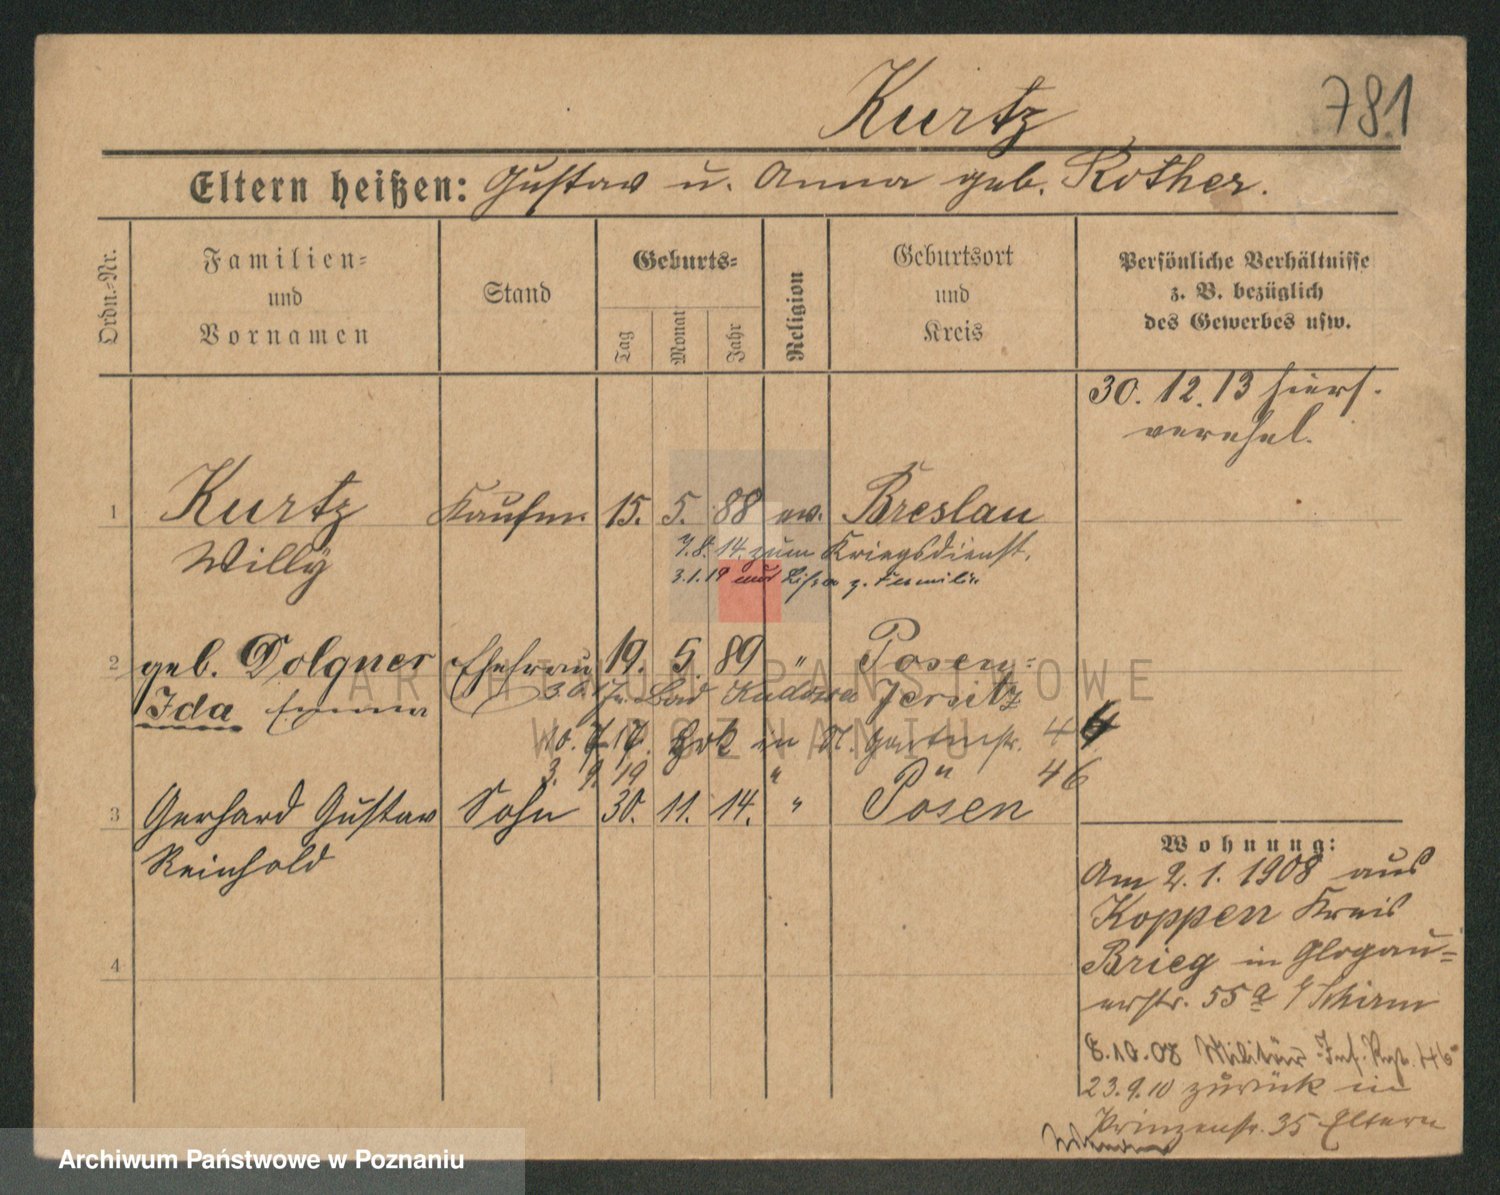 Kurtz
781
Eltern heißen: Gustav u. Anna geb. Rother.
Ordn.-Nr.
Familien-
und
Vornamen
Stand
Geburts-
Tag
Monat
Jahr
Religion
Geburtsort
und
Kreis
Persönliche Verhältnisse
z. B. bezüglich
des Gewerbes usw.
30. 12. 13 hiers.
verehel.
1 Kurtz Kaufm. 15. 5. 88 ev. Breslau
Willy
7. 8. 14. zum Kriegsdienst.
3.1.19 aus Lissa z. Familie
2 geb. Dolgner Ehefrau 19. 5. 89 " Posen-
Ida Emma
Bad Kudowa Jersitz
10. 7. 17. zrk in N. Gartenstr. 44
3. 9. 19 " " 46
3 Gerhard Gustav Sohn 30. 11. 14. " Posen
Reinhold
4
Wohnung:
Am 2. 1. 1908 aus
Koppen Kreis
Brieg in Glogau-
erstr. 55a b/ Schirm
8.10.08 Militär Inf. Rgt. 46
23.9.10 zurück in
Prinzenstr. 35 Eltern
ARCHIWUM PAŃSTWOWE
W POZNANIU
Archiwum Państwowe w Poznaniu